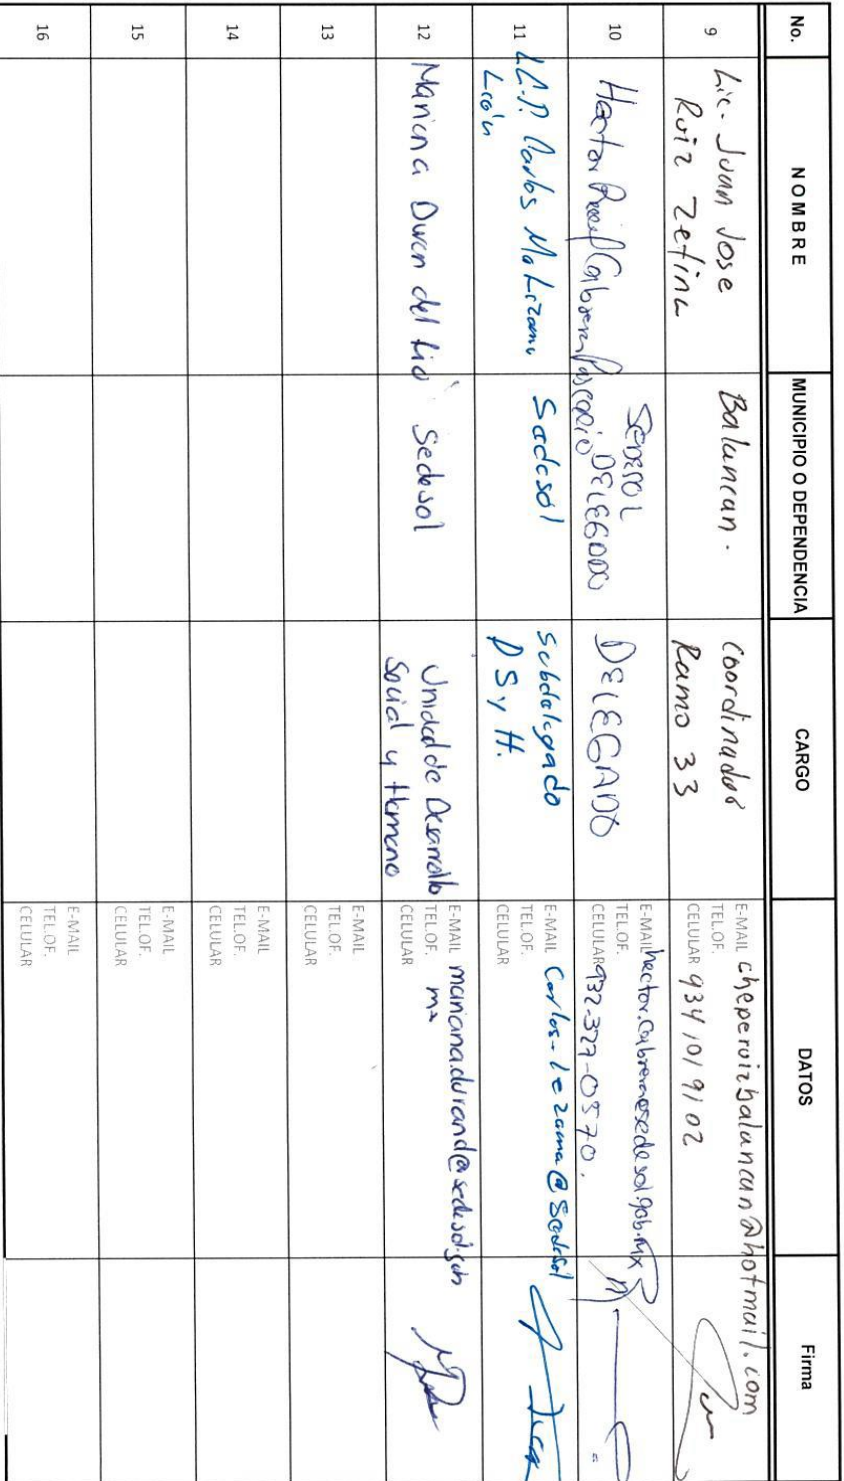 No. NOMBRE MUNICIPIO O DEPENDENCIA CARGO DATOS Firma
9
Lic. Juan Jose
Ruiz Zetina
Balancan.
Coordinador
Ramo 33
E-MAIL cheperuizbalancan@hotmail.com
TEL.OF.
CELULAR 934 101 9102
10
Hector Cabrera Pascacio
SEDESOL
DELEGADO
DELEGADO
E-MAIL hector.cabrera@sedesol.gob.mx
TEL.OF.
CELULAR 932-327-0570.
11
Carlos
León
Sedesol
Subdelegado
D S y H.
E-MAIL Carlos-lezama@Sedesol
TEL.OF.
CELULAR
12
Mariana Duran del Lio
Sedesol
Unidad de Desarrollo
Social y Humano
E-MAIL mariana.durand@sedesol.gob
TEL.OF. mx
CELULAR
13
E-MAIL
TEL.OF.
CELULAR
14
E-MAIL
TEL.OF.
CELULAR
15
E-MAIL
TEL.OF.
CELULAR
16
E-MAIL
TEL.OF.
CELULAR